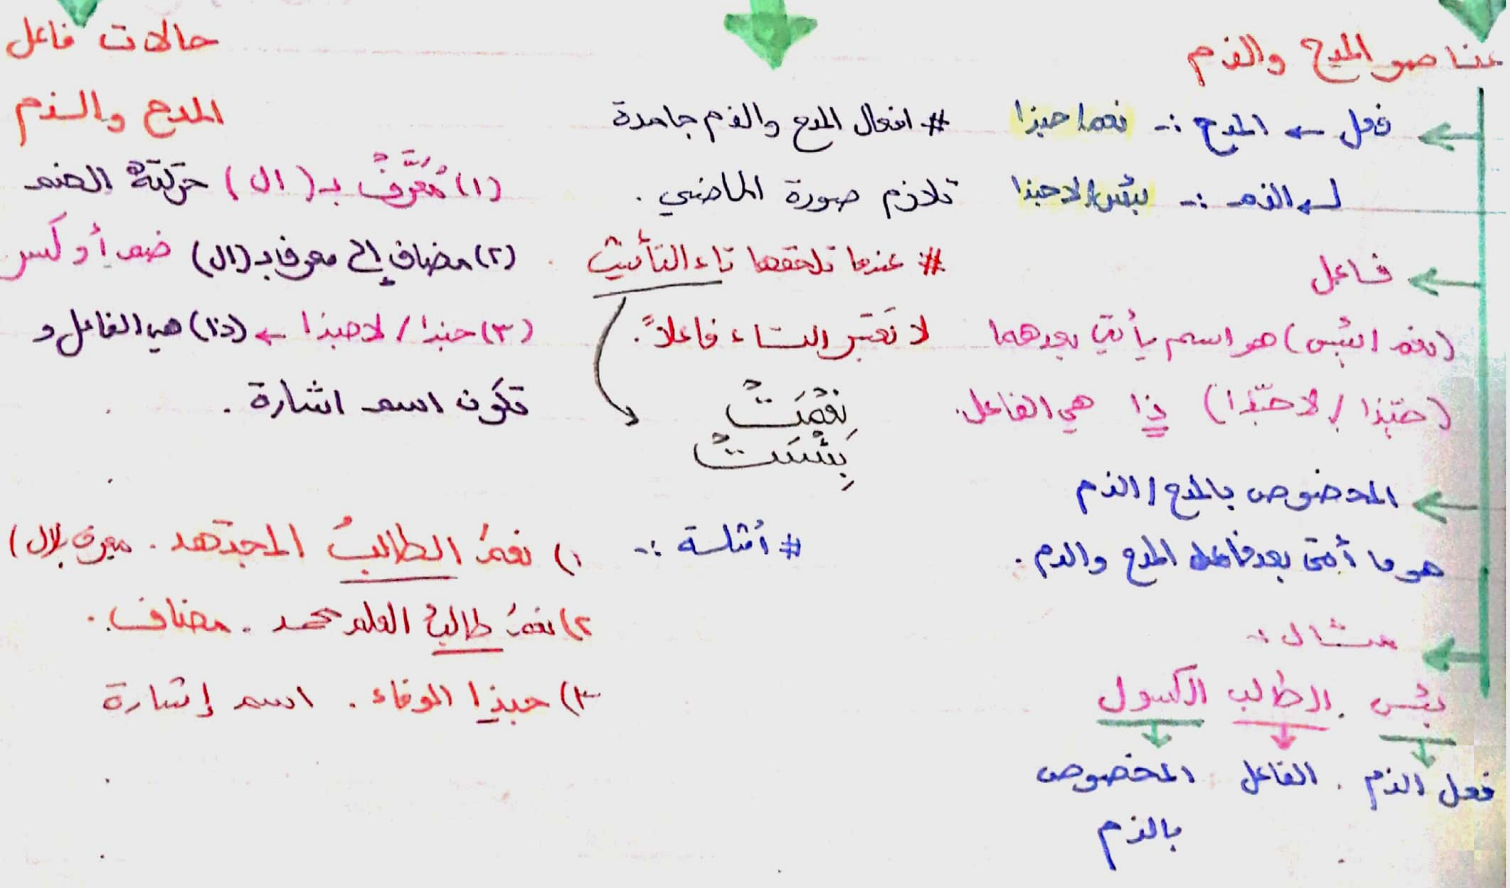 عناصر المدح والذم
فعل ← المدح :- نعم/حبذا
الذم :- بئس/لا حبذا
فاعل
(نعم / بئس) هو اسم يأتي بعدهما
(حبّذا / لا حبّذا) ذا هي الفاعل.
المخصوص بالمدح / الذم
هو ما أتى بعد فاعل المدح والذم.
مثال :-
بئس الطالب الكسول
فعل الذم . الفاعل المخصوص
بالذم
# افعال المدح والذم جامدة
تلازم صورة الماضي .
# عندما تلحقها تاء التأنيث
لا تعتبر التاء فاعلاً.
نِعْمَتْ
بِئْسَتْ
# أمثلة :-
حالات فاعل
المدح والذم
(١) مُعَرَّفٌ بـ (ال) حركته الضم
(٢) مضاف إلى معرف بـ (ال) ضم أو كسر
(٣) حبذا / لا حبذا ← (ذا) هي الفاعل و
تكون اسم اشارة .
١) نعمَ الطالبُ المجتهد . معرف بـ(ال)
٢) نعمَ طالبُ العلم محمد . مضاف .
٣) حبذا الوفاء . اسم إشارة